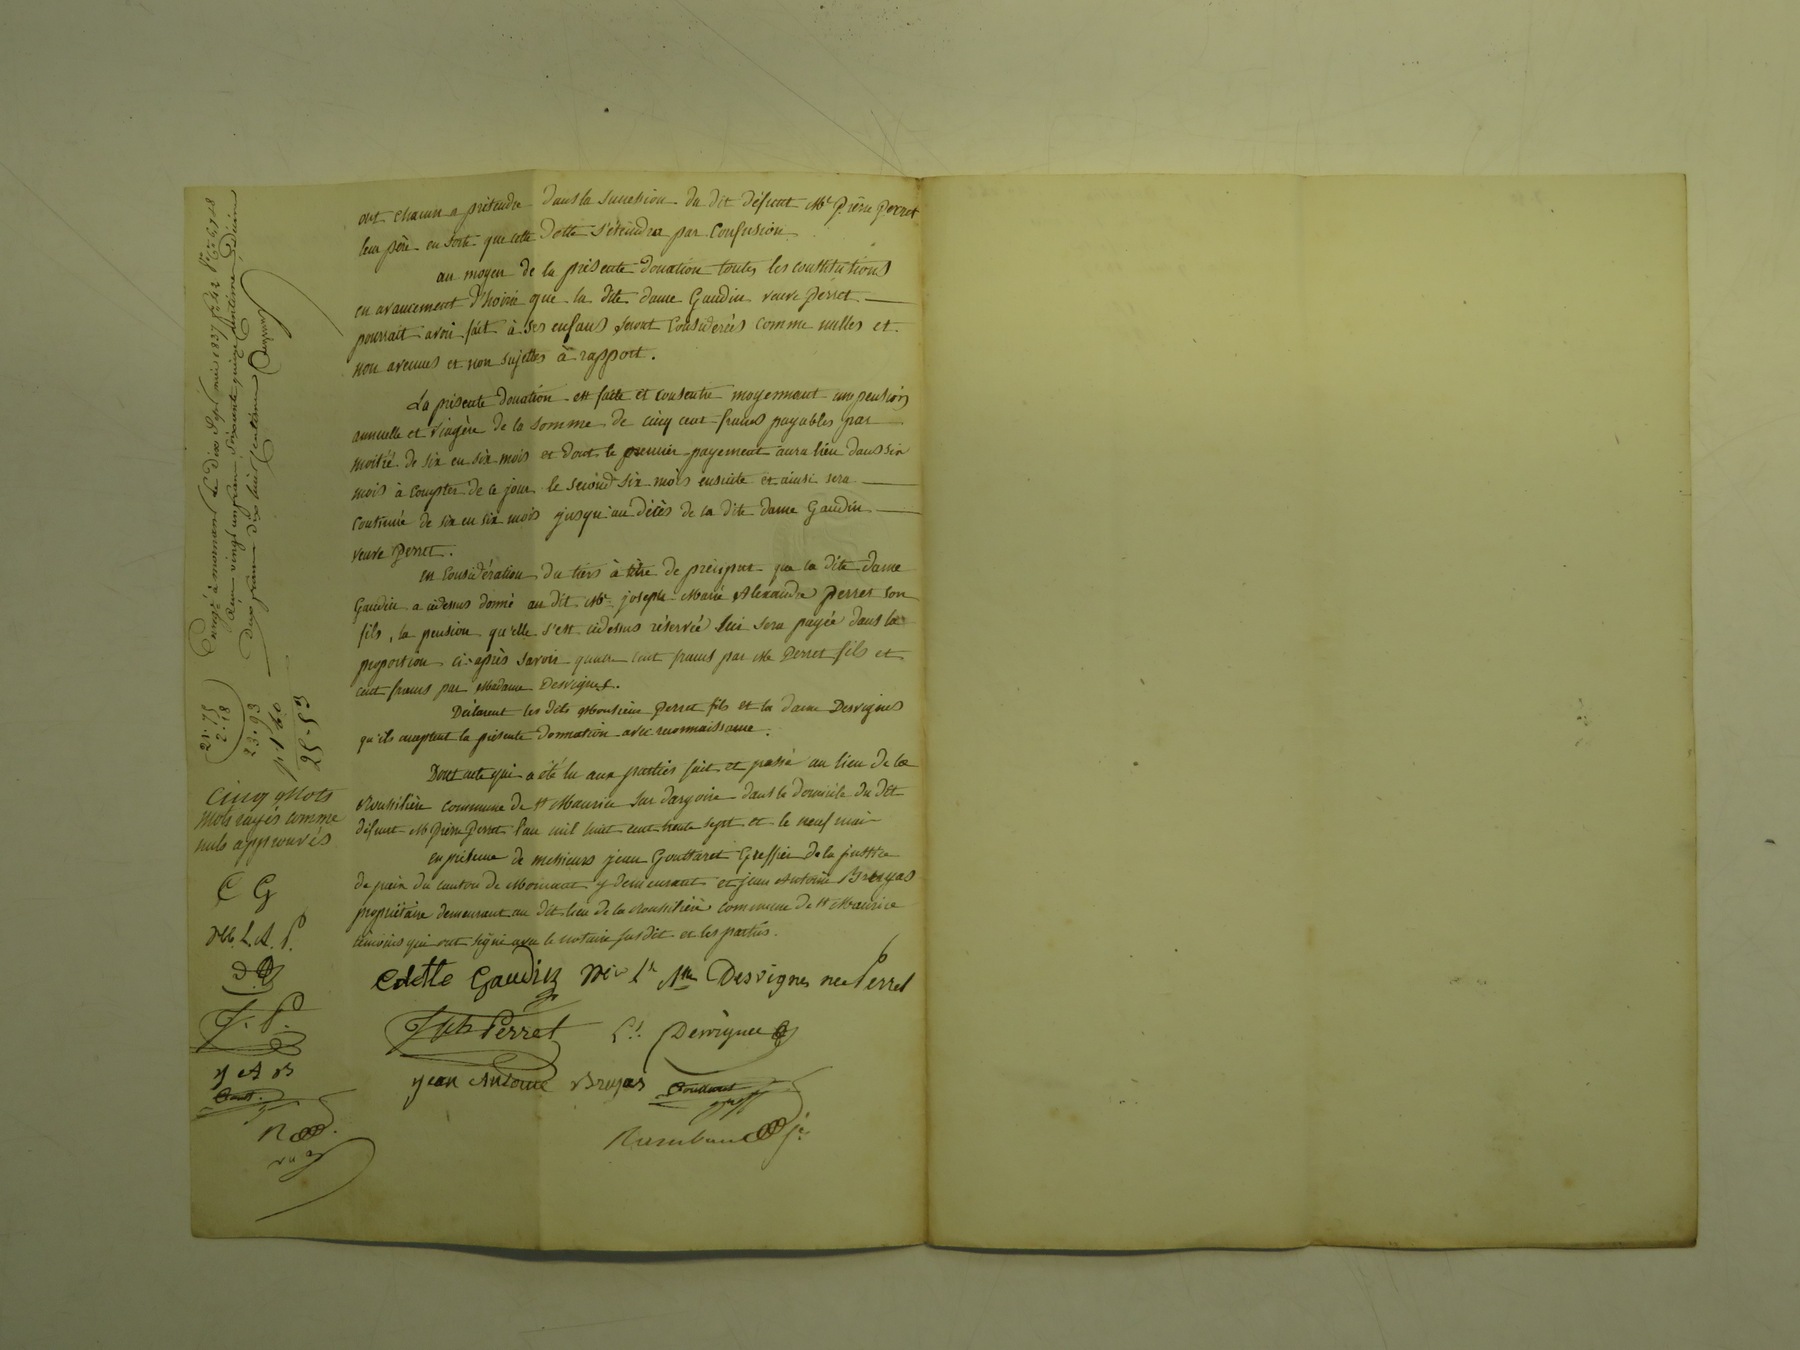 ont chacun a prétendre dans la succession du dit défunt Mr. Pierre Perret
leur père en sorte que cette dette s'éteindra par confusion.
au moyen de la présente donation toutes les constitutions
en avancement d'hoirie que la dite dame Gaudin veuve Perret
pourrait avoir fait à ses enfans seront considérées comme nulles et
non avenues et non sujettes à rapport.
La présente donation est faite et consentie moyennant une pension
annuelle et viagère de la somme de cinq cent francs payables par
moitié de six en six mois et dont le premier payement aura lieu dans six
mois à compter de ce jour le second six mois ensuite et ainsi sera
continué de six en six mois jusqu'au décès de la dite dame Gaudin
veuve Perret.
en considération du tiers à titre de préciput que la dite dame
Gaudin a cidessus donné au dit Mr. joseph Marie Alexandre Perret son
fils, la pension qu'elle s'est cidessus réservée lui sera payée dans la
proportion ci-après savoir quatre cent francs par Mr Perret fils et
cent francs par Madame Desvignes.
Déclarent les dits Monsieur Perret fils et la dame Desvignes
qu'ils acceptent la présente donnation avec reconnaissance.
Dont acte qui a été lu aux parties fait et passé au lieu de la
Roussilière commune de St Maurice sur dargoire dans le domicile du dit
défunt Mr Pierre Perret l'an mil huit cent trente sept et le neuf mai
en présence de messieurs jean Gouttaret Greffier de la justice
de paix du canton de Mornant y demeurant et jean Antoine Bruyas
propriétaire demeurant au dit lieu de la Roussilière commune de St Maurice
témoins qui ont signé avec le notaire susdit et les parties.
Colette Gaudin Desvignes née Perret
Jph Perret Desvignes
jean Antoine Bruyas Gouttaret
Enrgé à mornant le dix sept mai 1837
reçu vingt un francs soixante quinze centimes, décime
deux francs dix huit centimes
21.75
2.18
23.93
1.60
25-53
Cinq Mots
Mots rayés comme
nuls approuvés
C G
L. A. P.
J. P.
J A B
Gout.